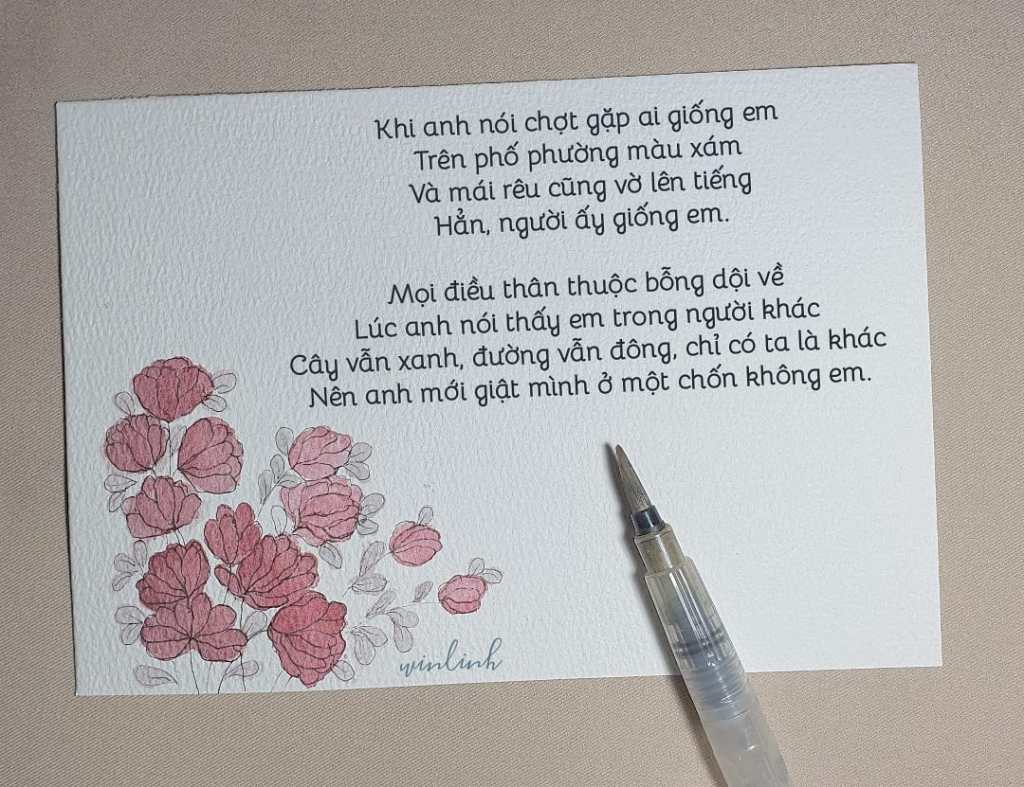 Khi anh nói chợt gặp ai giống em
Trên phố phường màu xám
Và mái rêu cũng vờ lên tiếng
Hẳn, người ấy giống em.
Mọi điều thân thuộc bỗng dội về
Lúc anh nói thấy em trong người khác
Cây vẫn xanh, đường vẫn đông, chỉ có ta là khác
Nên anh mới giật mình ở một chốn không em.
winlinh